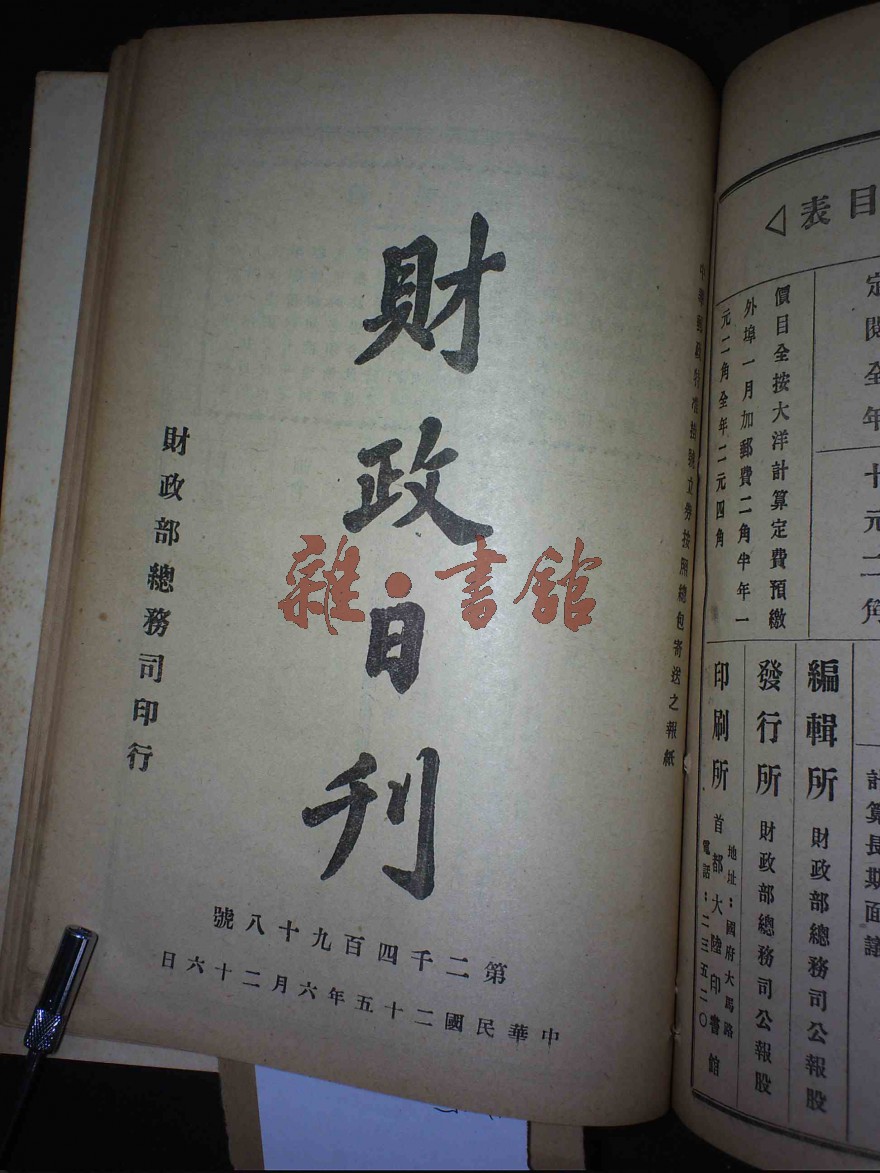 目表◁
定閱全年
十元二角
價目全按大洋計算定費預繳
外埠一月加郵費二角半年一
元二角全年二元四角
計算長期面議
編輯所 財政部總務司公報股
發行所 財政部總務司公報股
印刷所 首都大陸印書館
地址：國府大馬路
電話：二三五二〇
中華郵政特准掛號立券按照總包寄送之報紙
財政日刊
財政部總務司印行
第二千四百九十八號
中華民國二十五年六月二十六日
雜·書館